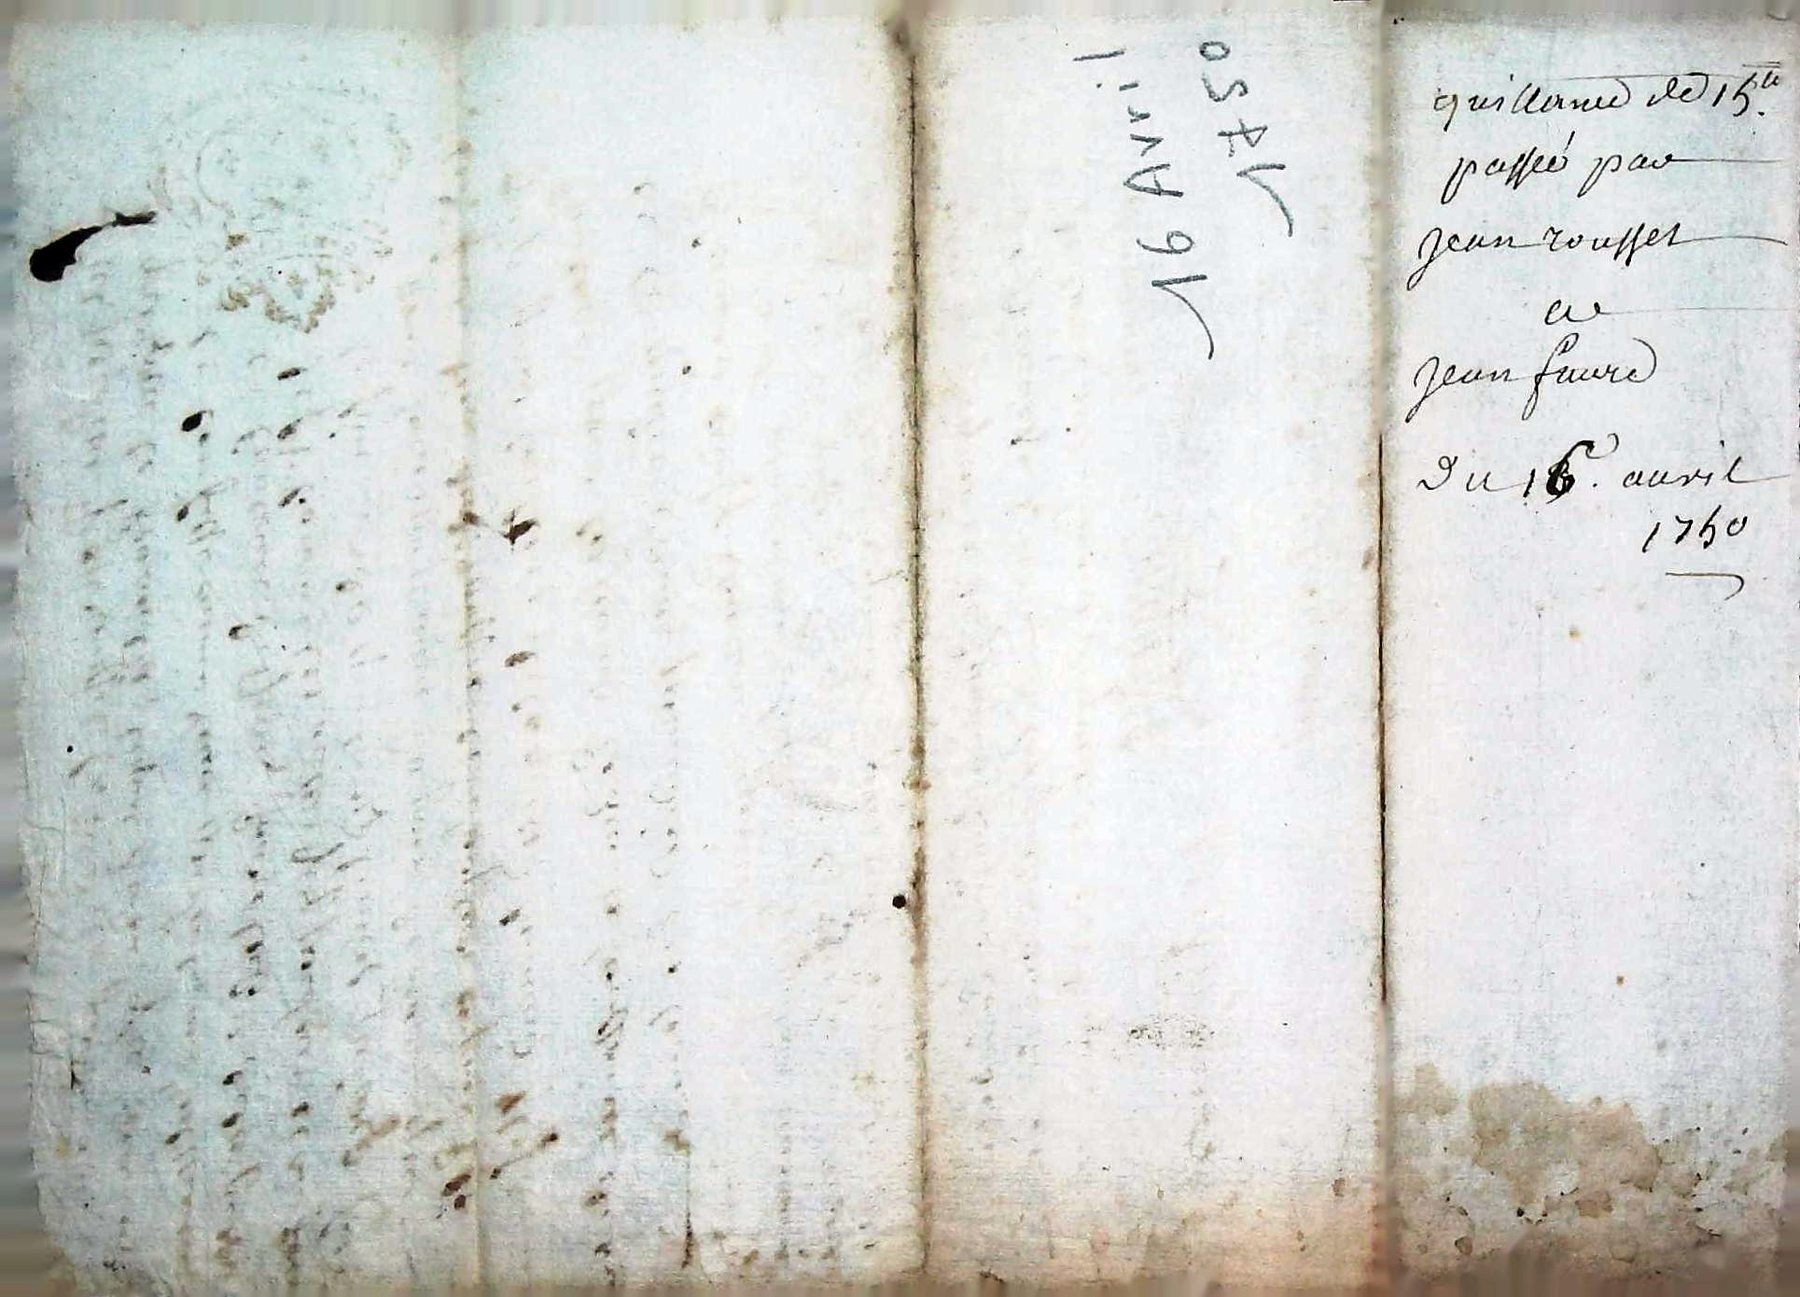 quittance de 15ᵗᵗ.
passée par
jean rousset
a
jean faure
Du 16. avril
1750
16 Avril
1750